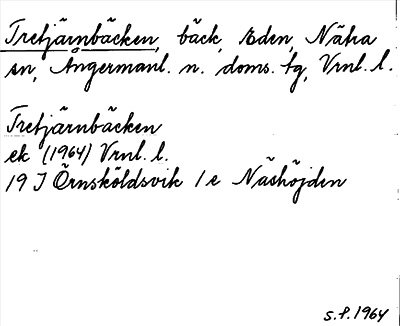 Tretjärnbäcken, bäck, Eden, Nätra
sn, Ångermanl. n. doms. tg, Vrnl. l.
Tretjärnbäcken
ek (1964) Vrnl. l.
19 J Örnsköldsvik 1e Näshöjden
s.f. 1964